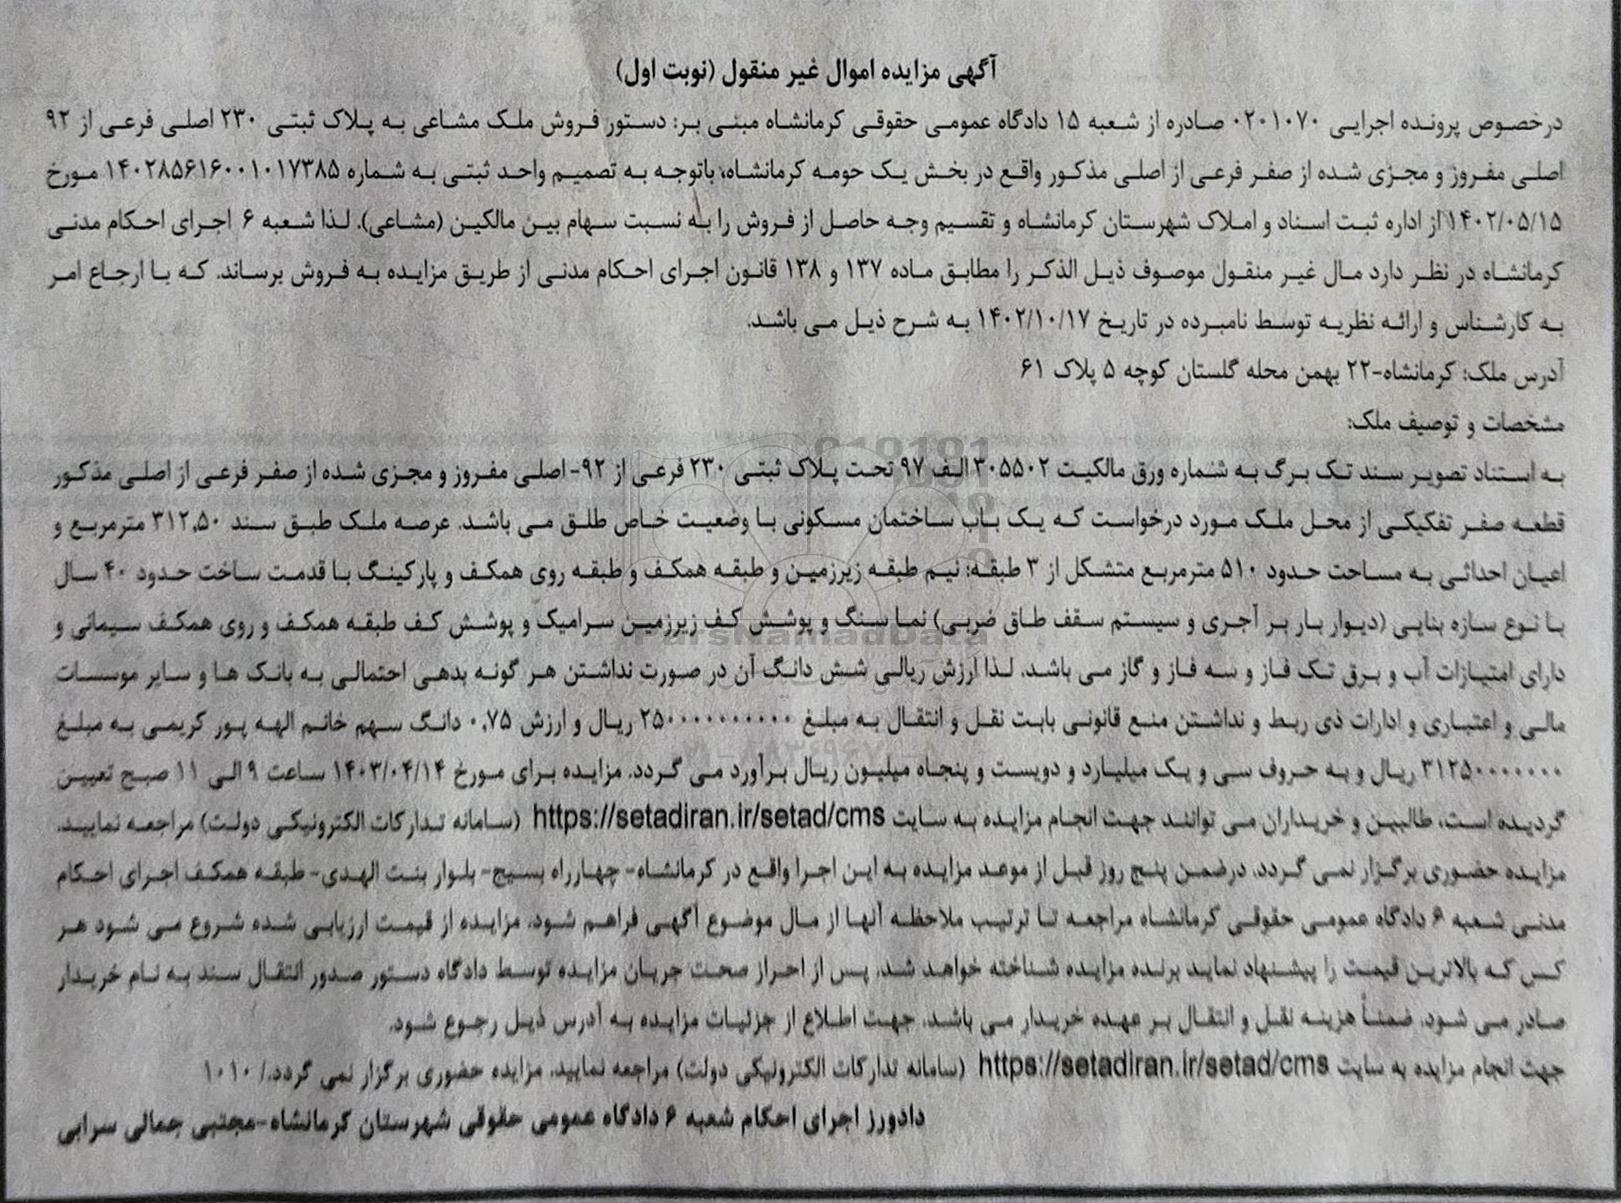 آگهی مزایده اموال غیر منقول (نوبت اول)
درخصوص پرونده اجرایی ۰۲۰۱۰۷۰ صادره از شعبه ۱۵ دادگاه عمومی حقوقی کرمانشاه مبنی بر: دستور فروش ملک مشاعی به پلاک ثبتی ۲۳۰ اصلی فرعی از ۹۲
اصلی مفروز و مجزی شده از صفر فرعی از اصلی مذکور واقع در بخش یک حومه کرمانشاه، باتوجه به تصمیم واحد ثبتی به شماره ۱۴۰۲۸۵۶۱۶۰۰۱۰۱۷۳۸۵ مورخ
۱۴۰۲/۰۵/۱۵ از اداره ثبت اسناد و املاک شهرستان کرمانشاه و تقسیم وجه حاصل از فروش را به نسبت سهام بین مالکین (مشاعی). لذا شعبه ۶ اجرای احکام مدنی
کرمانشاه در نظر دارد مال غیر منقول موصوف ذیل الذکر را مطابق ماده ۱۳۷ و ۱۳۸ قانون اجرای احکام مدنی از طریق مزایده به فروش برساند. که با ارجاع امر
به کارشناس و ارائه نظریه توسط نامبرده در تاریخ ۱۴۰۲/۱۰/۱۷ به شرح ذیل می باشد.
آدرس ملک: کرمانشاه-۲۲ بهمن محله گلستان کوچه ۵ پلاک ۶۱
مشخصات و توصیف ملک:
به استناد تصویر سند تک برگ به شماره ورق مالکیت ۳۰۵۵۰۲ الف ۹۷ تحت پلاک ثبتی ۲۳۰ فرعی از ۹۲- اصلی مفروز و مجزی شده از صفر فرعی از اصلی مذکور
قطعه صفر تفکیکی از محل ملک مورد درخواست که یک باب ساختمان مسکونی با وضعیت خاص طلق می باشد. عرصه ملک طبق سند ۳۱۲,۵۰ مترمربع و
اعیان احداثی به مساحت حدود ۵۱۰ مترمربع متشکل از ۳ طبقه: نیم طبقه زیرزمین و طبقه همکف و طبقه روی همکف و پارکینگ با قدمت ساخت حدود ۴۰ سال
با نوع سازه بنایی (دیوار بار بر آجری و سیستم سقف طاق ضربی) نما سنگ و پوشش کف زیرزمین سرامیک و پوشش کف طبقه همکف و روی همکف سیمانی و
دارای امتیازات آب و برق تک فاز و سه فاز و گاز می باشد. لذا ارزش ریالی شش دانگ آن در صورت نداشتن هر گونه بدهی احتمالی به بانک ها و سایر موسسات
مالی و اعتباری و ادارات ذی ربط و نداشتن منع قانونی بابت نقل و انتقال به مبلغ ۲۵۰۰۰۰۰۰۰۰۰۰ ریال و ارزش ۰,۷۵ دانگ سهم خانم الهه پور کریمی به مبلغ
۳۱۲۵۰۰۰۰۰۰۰ ریال و به حروف سی و یک میلیارد و دویست و پنجاه میلیون ریال برآورد می گردد. مزایده برای مورخ ۱۴۰۳/۰۴/۱۴ ساعت ۹ الی ۱۱ صبح تعیین
گردیده است، طالبین و خریداران می توانند جهت انجام مزایده به سایت https://setadiran.ir/setad/cms (سامانه تدارکات الکترونیکی دولت) مراجعه نمایید.
مزایده حضوری برگزار نمی گردد. درضمن پنج روز قبل از موعد مزایده به این اجرا واقع در کرمانشاه- چهارراه بسیج- بلوار بنت الهدی- طبقه همکف اجرای احکام
مدنی شعبه ۶ دادگاه عمومی حقوقی کرمانشاه مراجعه تا ترتیب ملاحظه آنها از مال موضوع آگهی فراهم شود. مزایده از قیمت ارزیابی شده شروع می شود هر
کس که بالاترین قیمت را پیشنهاد نماید برنده مزایده شناخته خواهد شد. پس از احراز صحت جریان مزایده توسط دادگاه دستور صدور انتقال سند به نام خریدار
صادر می شود. ضمناً هزینه نقل و انتقال بر عهده خریدار می باشد. جهت اطلاع از جزئیات مزایده به آدرس ذیل رجوع شود.
جهت انجام مزایده به سایت https://setadiran.ir/setad/cms (سامانه تدارکات الکترونیکی دولت) مراجعه نمایید. مزایده حضوری برگزار نمی گردد./ ۱۰۱۰
دادورز اجرای احکام شعبه ۶ دادگاه عمومی حقوقی شهرستان کرمانشاه-مجتبی جمالی سرابی